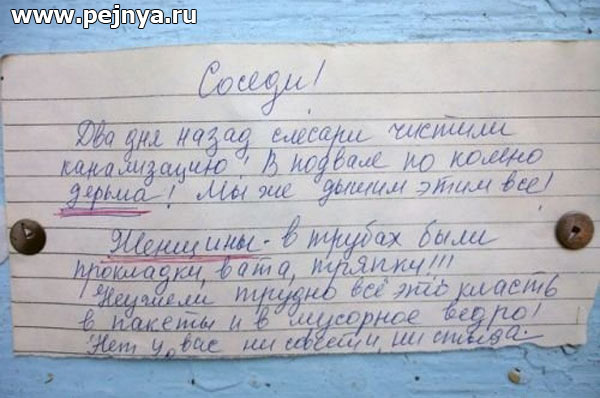 www.pejnya.ru
Соседи!
Два дня назад слесари чистили
канализацию! В подвале по колено
дерьма! Мы же дышим этим все!
Женщины - в трубах были
прокладки, вата, тряпки!!!
Неужели трудно всё это класть
в пакеты и в мусорное ведро!
Нет у вас ни совести, ни стыда.